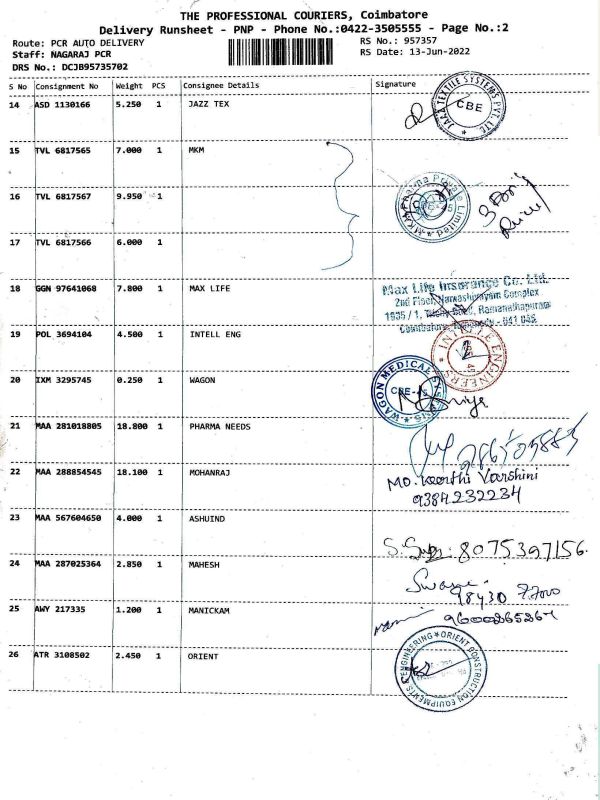 THE PROFESSIONAL COURIERS, Coimbatore
Delivery Runsheet - PNP - Phone No.:0422-3505555 - Page No.:2
Route: PCR AUTO DELIVERY RS No.: 957357
Staff: NAGARAJ PCR RS Date: 13-Jun-2022
DRS No.: DCJB95735702
S No Consignment No Weight PCS Consignee Details Signature
14 ASD 1130166 5.250 1 JAZZ TEX
JAZZ TEXTILE SYSTEMS PVT. LTD
CBE
15 TVL 6817565 7.000 1 MKM
16 TVL 6817567 9.950 1
MKM Pharma Private Limited
17 TVL 6817566 6.000 1
18 GGN 97641068 7.800 1 MAX LIFE
Max Life Insurance Co. Ltd.
2nd Floor, Namashivayam Complex
1935 / 1, Road, Ramanathapuram
Coimbatore, - 641 045
19 POL 3694104 4.500 1 INTELL ENG
ENGINEERS
20 IXM 3295745 0.250 1 WAGON
WAGON MEDICAL SYSTEMS
CBE-45
21 MAA 281018805 18.800 1 PHARMA NEEDS
22 MAA 288854545 18.100 1 MOHANRAJ
Mo. Keerthi Varshini
9384232234
23 MAA 567604650 4.000 1 ASHUIND
8075397156
24 MAA 287025364 2.850 1 MAHESH
25 AWY 217335 1.200 1 MANICKAM
26 ATR 3108502 2.450 1 ORIENT
ENGINEERING ORIENT CONSTRUCTION EQUIPMENTS